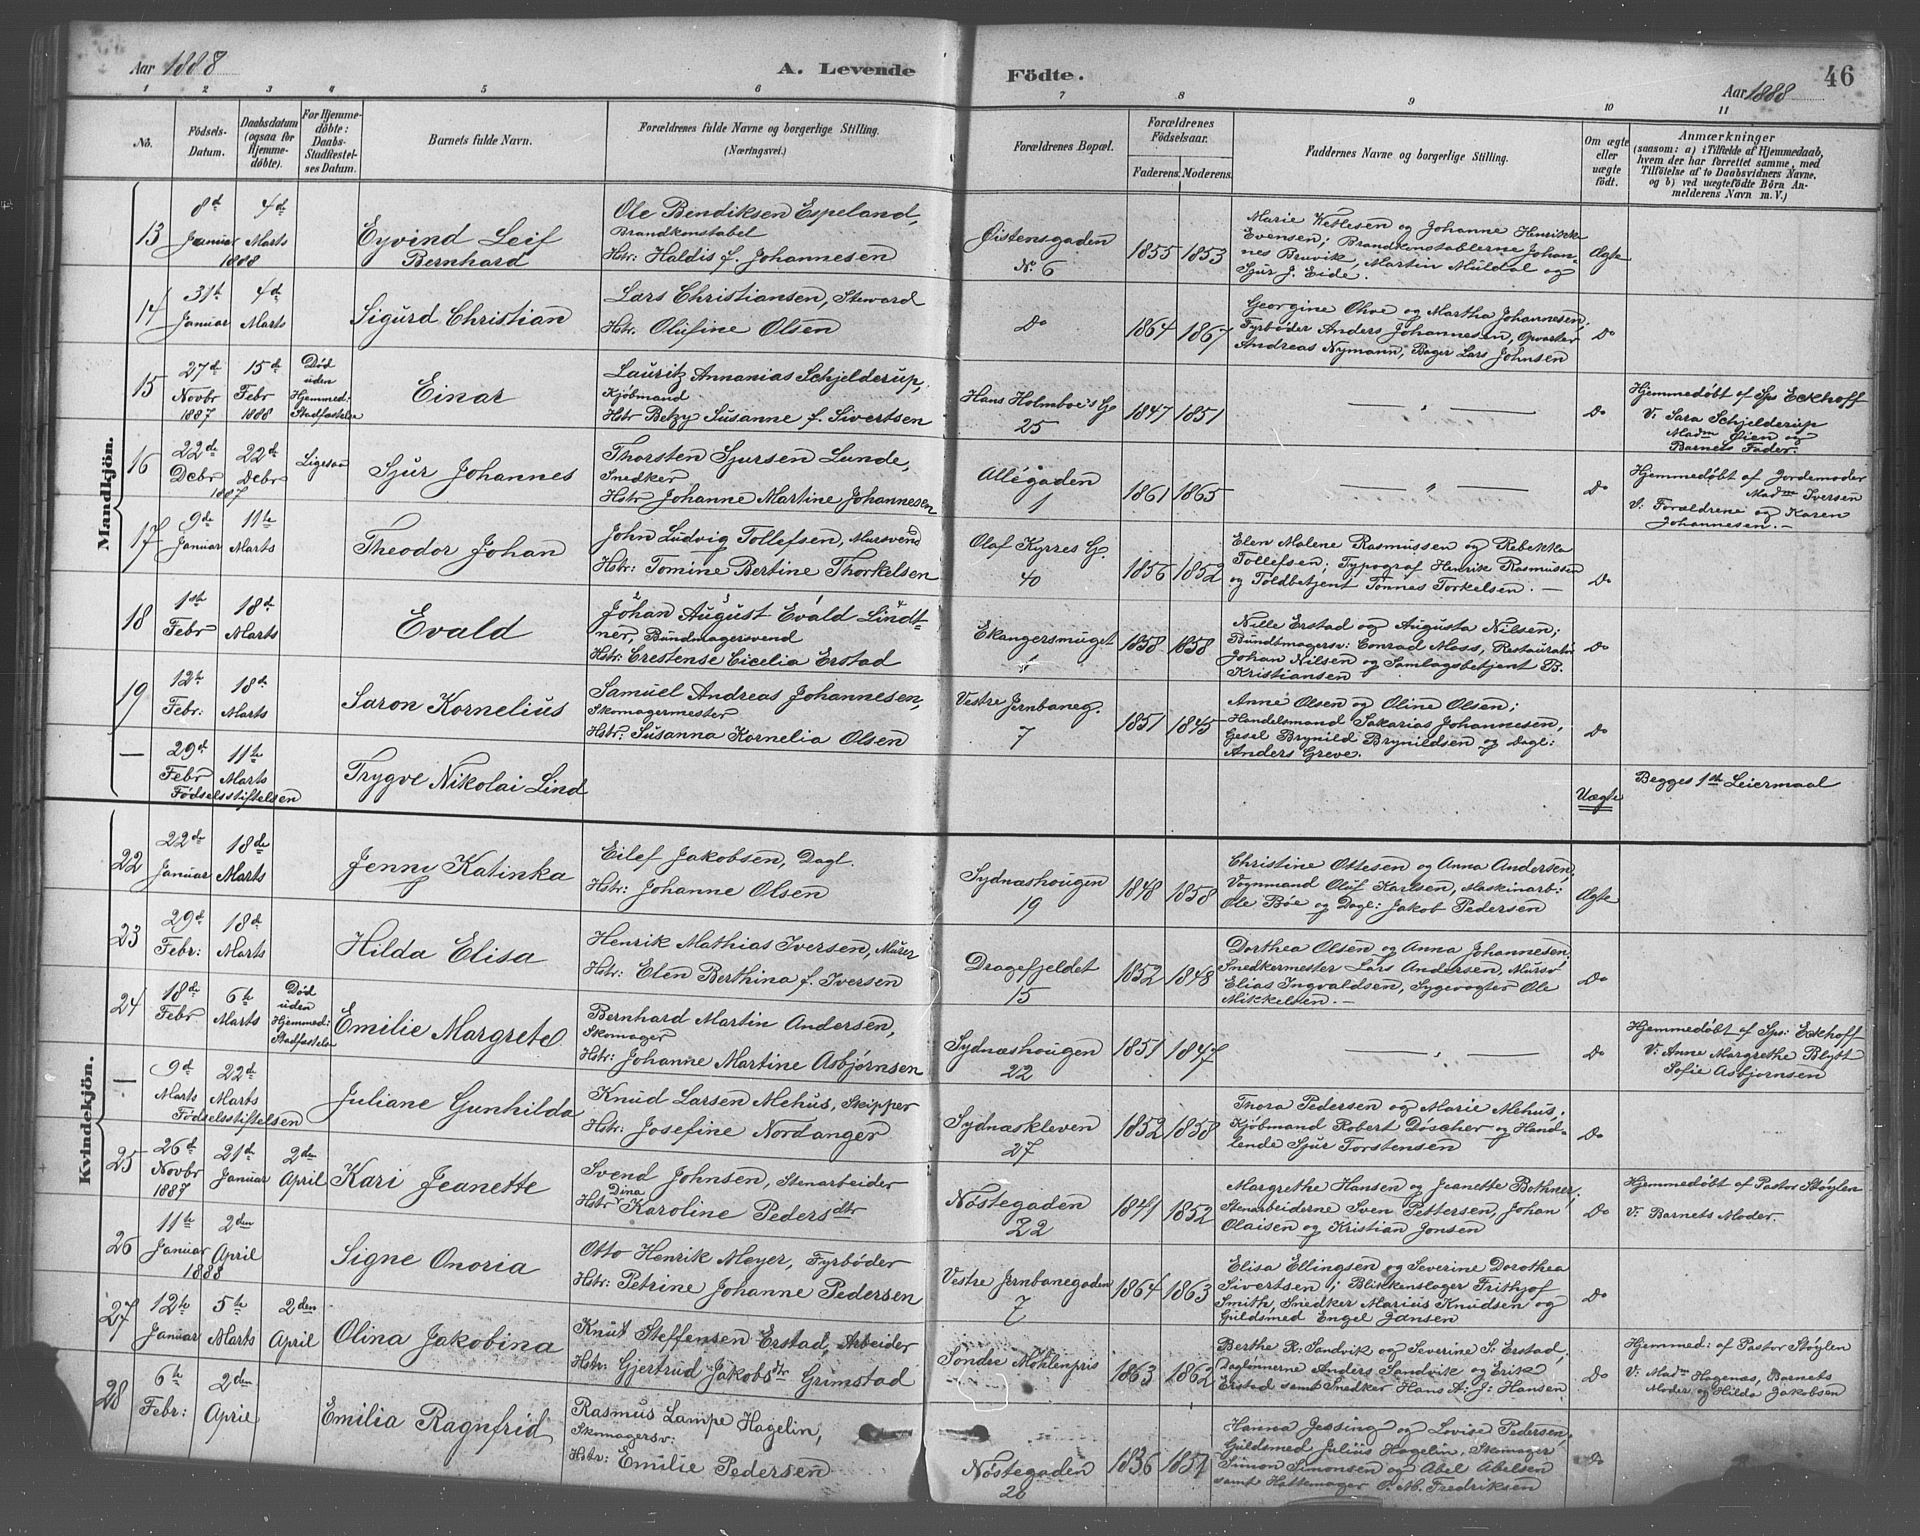 Aar 1888
A. Levende
Födte.
Aar 1888
46
1 2 3 4 5 6 7 8 9 10 11
No.
Födsels-Datum.
Daabsdatum (ogsaa for Hjemmedöbte).
For Hjemmedöbte: Daabs-Stadfæstelses Datum.
Barnets fulde Navn.
Forældrenes fulde Navne og borgerlige Stilling.
(Næringsvei.)
Forældrenes Bopæl.
Forældrenes Födselsaar.
Faderens. Moderens.
Faddernes Navne og borgerlige Stilling.
Om ægte eller uægte födt.
Anmærkninger
(saasom: a) i Tilfælde af Hjemmedaab, hvem der har forrettet samme, med Tilföielse af to Daabsvidners Navne, og b) ved uægtefödte Börn Anmelderens Navn m. V.)
Mandkjön.
13
8d Januar 1888
4d Marts
Eyvind Leif
Bernhard
Ole Bendiksen Espeland,
Brandkonstabel
Hstr: Haldis f. Johannesen
Øistensgaden
No 6
1855 1853
Marie Ketlesen og Johanne Henrikke
Evensen; Brandkonstablerne Johan-
nes Bruvik, Martin Muldal og
Sjur J. Eide.
Ægte
14
31te Januar
4d Marts
Sigurd Christian
Lars Christiansen, Steward
Hstr. Olufine Olsen
Do
1864 1867
Georgine Ohve og Martha Johannesen;
Fyrbøder Anders Johannesen, Opvarter
Andreas Nymann, Bager Lars Johnsen
Do
15
27d Novbr 1887
15d Febr 1888
Død uden Hjemmed: Stadfæstelse
Einar
Lauritz Annanias Schjelderup,
Kjøbmand
Hstr Betzy Susanne f. Sivertsen
Hans Holmboe's G.
25
1847 1851
— " —
Do
Hjemmedøbt af Sps Eckhoff
V: Sara Schjelderup
Madm Øien og
Barnets Fader.
16
22de Debr 1887
22de Debr
Ligesaa
Sjur Johannes
Thorsten Sjursen Lunde,
Snedker
Hstr Johanne Martine Johannesen
Allégaden
1
1861 1865
— " —
Do
Hjemmedøbt af Jordemoder
Madm Iversen
V: Forældrene og Karen
Johannesen. -
17
9de Januar
11te Marts
Theodor Johan
John Ludvig Tollefsen, Mursvend
Hstr: Tomine Bertine Thorkelsen
Olaf Kyrres G.
40
1856 1852
Elen Malene Rasmussen og Rebekka
Tollefsen; Typograf Henrik Rasmussen
og Toldbetjent Tønnes Torkelsen. —
Do
18
1ste Febr
18d Marts
Evald
Johan August Evald Lindt-
ner, Bundmagersvend
Hstr: Crestense Cicelia Erstad
Ekangersmuget
1858 1858
Nille Erstad og Augusta Nilsen;
Bundtmagersv: Conrad Moss, Restauratør
Johan Nilsen og Samlagsbetjent B.
Kristiansen
Do
19
12te Febr:
18d Marts
Saron Kornelius
Samuel Andreas Johannesen,
Skomagermester
Hstr: Susanna Kornelia Olsen
Vestre Jernbaneg.
7
1851 1845
Anne Olsen og Oline Olsen;
Handelsmand Sakarias Johannesen,
Gesel Brynild Brynildsen og Dagl:
Anders Greve.
Do
—
29d Febr
11te Marts
Fødselsstiftelsen
Trygve Nikolai Lind
Uægte
Begges 1ste Leiermaal
Kvindekjön.
22
22de Januar
18de Marts
Jenny Katinka
Eilef Jakobsen, Dagl.
Hstr: Johanne Olsen
Sydnæshougen
19
1848 1858
Christine Ottesen og Anna Andersen,
Vognmand Oluf Karlsen, Maskinarb:
Ole Bøe og Dagl: Jakob Pedersen
Ægte
23
29d Febr:
18d Marts
Hilda Elisa
Henrik Mathias Iversen, Murer
Hstr: Elen Berthina f. Iversen
Dragefjeldet
15
1852 1848
Dorthea Olsen og Anna Johannesen;
Snedkermester Lars Andersen, Mursv
Elias Ingvaldsen, Sygevogter Ole
Mikkelsen. —
Do
24
18de Febr
6te Marts
Død uden Hjemmed: Stadfæstelse
Emilie Margrete
Bernhard Martin Andersen,
Skomager
Hstr: Johanne Martine Asbjørnsen
Sydnæshougen
22
1851 1847
— " —
Do
Hjemmedøbt af Sps: Eckhoff
V: Anne Margrethe Blytt
Sofie Asbjørnsen
—
9d Marts
22de Marts
Fødselsstiftelsen
Juliane Gunhilda
Knud Larsen Mehus, Skipper
Hstr: Josefine Nordanger
Sydnæskleven
27
1852 1858
Thora Pedersen og Marie Mehus,
Kjøbmand Robert Døscher og Hand-
lende Sjur Torstensen
Do
25
26d Novbr 1887
21de Januar
2den April
Kari Jeanette
Svend Johnsen, Stenarbeider
Hstr Dina Karoline Pedersdtr
Nøstegaden
32
1841 1852
Margrethe Hansen og Jeanette Bothner;
Stenarbeiderne Sven Pettersen, Johan
Olaisen og Kristian Jonsen
Do
Hjemmedøbt af Pastor Støylen
V: Barnets Moder.
26
11te Januar 1888
2den April
Signe Onoria
Otto Henrik Meyer, Fyrbøder
Hstr: Petrine Johanne Pedersen
Vestre Jernbanegaden
7
1864 1863
Elisa Ellingsen og Severine Dorothea
Sivertsen; Blikkenslager Frithjof
Smith, Snedker Marius Knudsen og
Guldsmed Engel Jansen
Do
27
12te Januar
5te Marts
2den April
Olina Jakobina
Knut Steffensen Erstad, Arbeider
Hstr: Gjertrud Jakobsdtr Grimstad
Søndre Møhlenpris
1863 1862
Berthe R: Sandvik og Severine S: Erstad;
Daglønnerne Anders Sandvik og Erik
Erstad samt Snedker Hans A: J: Hansen
Do
Hjemmed: af Pastor Støylen
V: Madm Hagenæs, Barnets
Moder og Hilda Jakobsen
28
6te Febr:
2den April
Emilia Ragnfrid
Rasmus Lampe Hagelin,
Skomagersv:
Hstr: Emilie Pedersen
Nøstegaden
20
1836 1857
Hanna Jessing og Lovise Pedersen;
Guldsmed Julius Hagelin, Skomager
Simon Simonsen og Abel Abelsen
samt Hattemager O. M. Fredriksen
Do